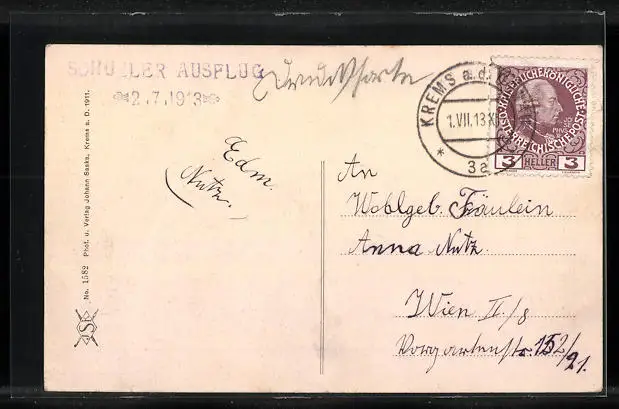 SCHÜLER AUSFLUG
2.7.1913
KREMS a.d.
1.VII.13
* 3a
KAISERLICHE KÖNIGLICHE
ÖSTERREICHISCHE POST
3 HELLER 3
Edm.
Nutz.
An
Wohlgeb. Fräulein
Anna Nutz.
Wien II/8
Vorgartenstr. 152/21.
No. 1582 Phot. u. Verlag Johann Saska, Krems a. D. 1911.